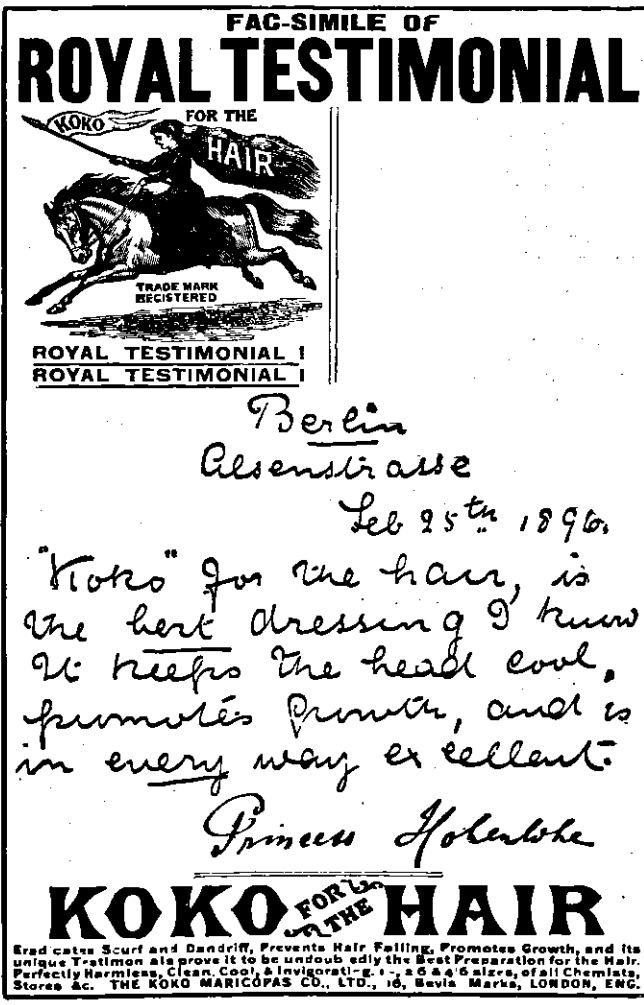 FAC-SIMILE OF
ROYAL TESTIMONIAL
KOKO FOR THE
HAIR
TRADE MARK
REGISTERED
ROYAL TESTIMONIAL !
ROYAL TESTIMONIAL !
Berlin
Alsenstrasse
Feb 25th 1896.
"Koko" for the hair, is
the best dressing I know
It keeps the head cool,
promotes growth, and is
in every way excellent.
Princess Hohenlohe
KOKO FOR THE HAIR
Eradicates Scurf and Dandriff, Prevents Hair Falling, Promotes Growth, and its
unique Testimonials prove it to be undoubtedly the Best Preparation for the Hair.
Perfectly Harmless, Clean, Cool, & Invigorating. 2/6 & 4/6 sizes, of all Chemists,
Stores &c. THE KOKO MARICOPAS CO., LTD., 16, Bevis Marks, LONDON, ENG.